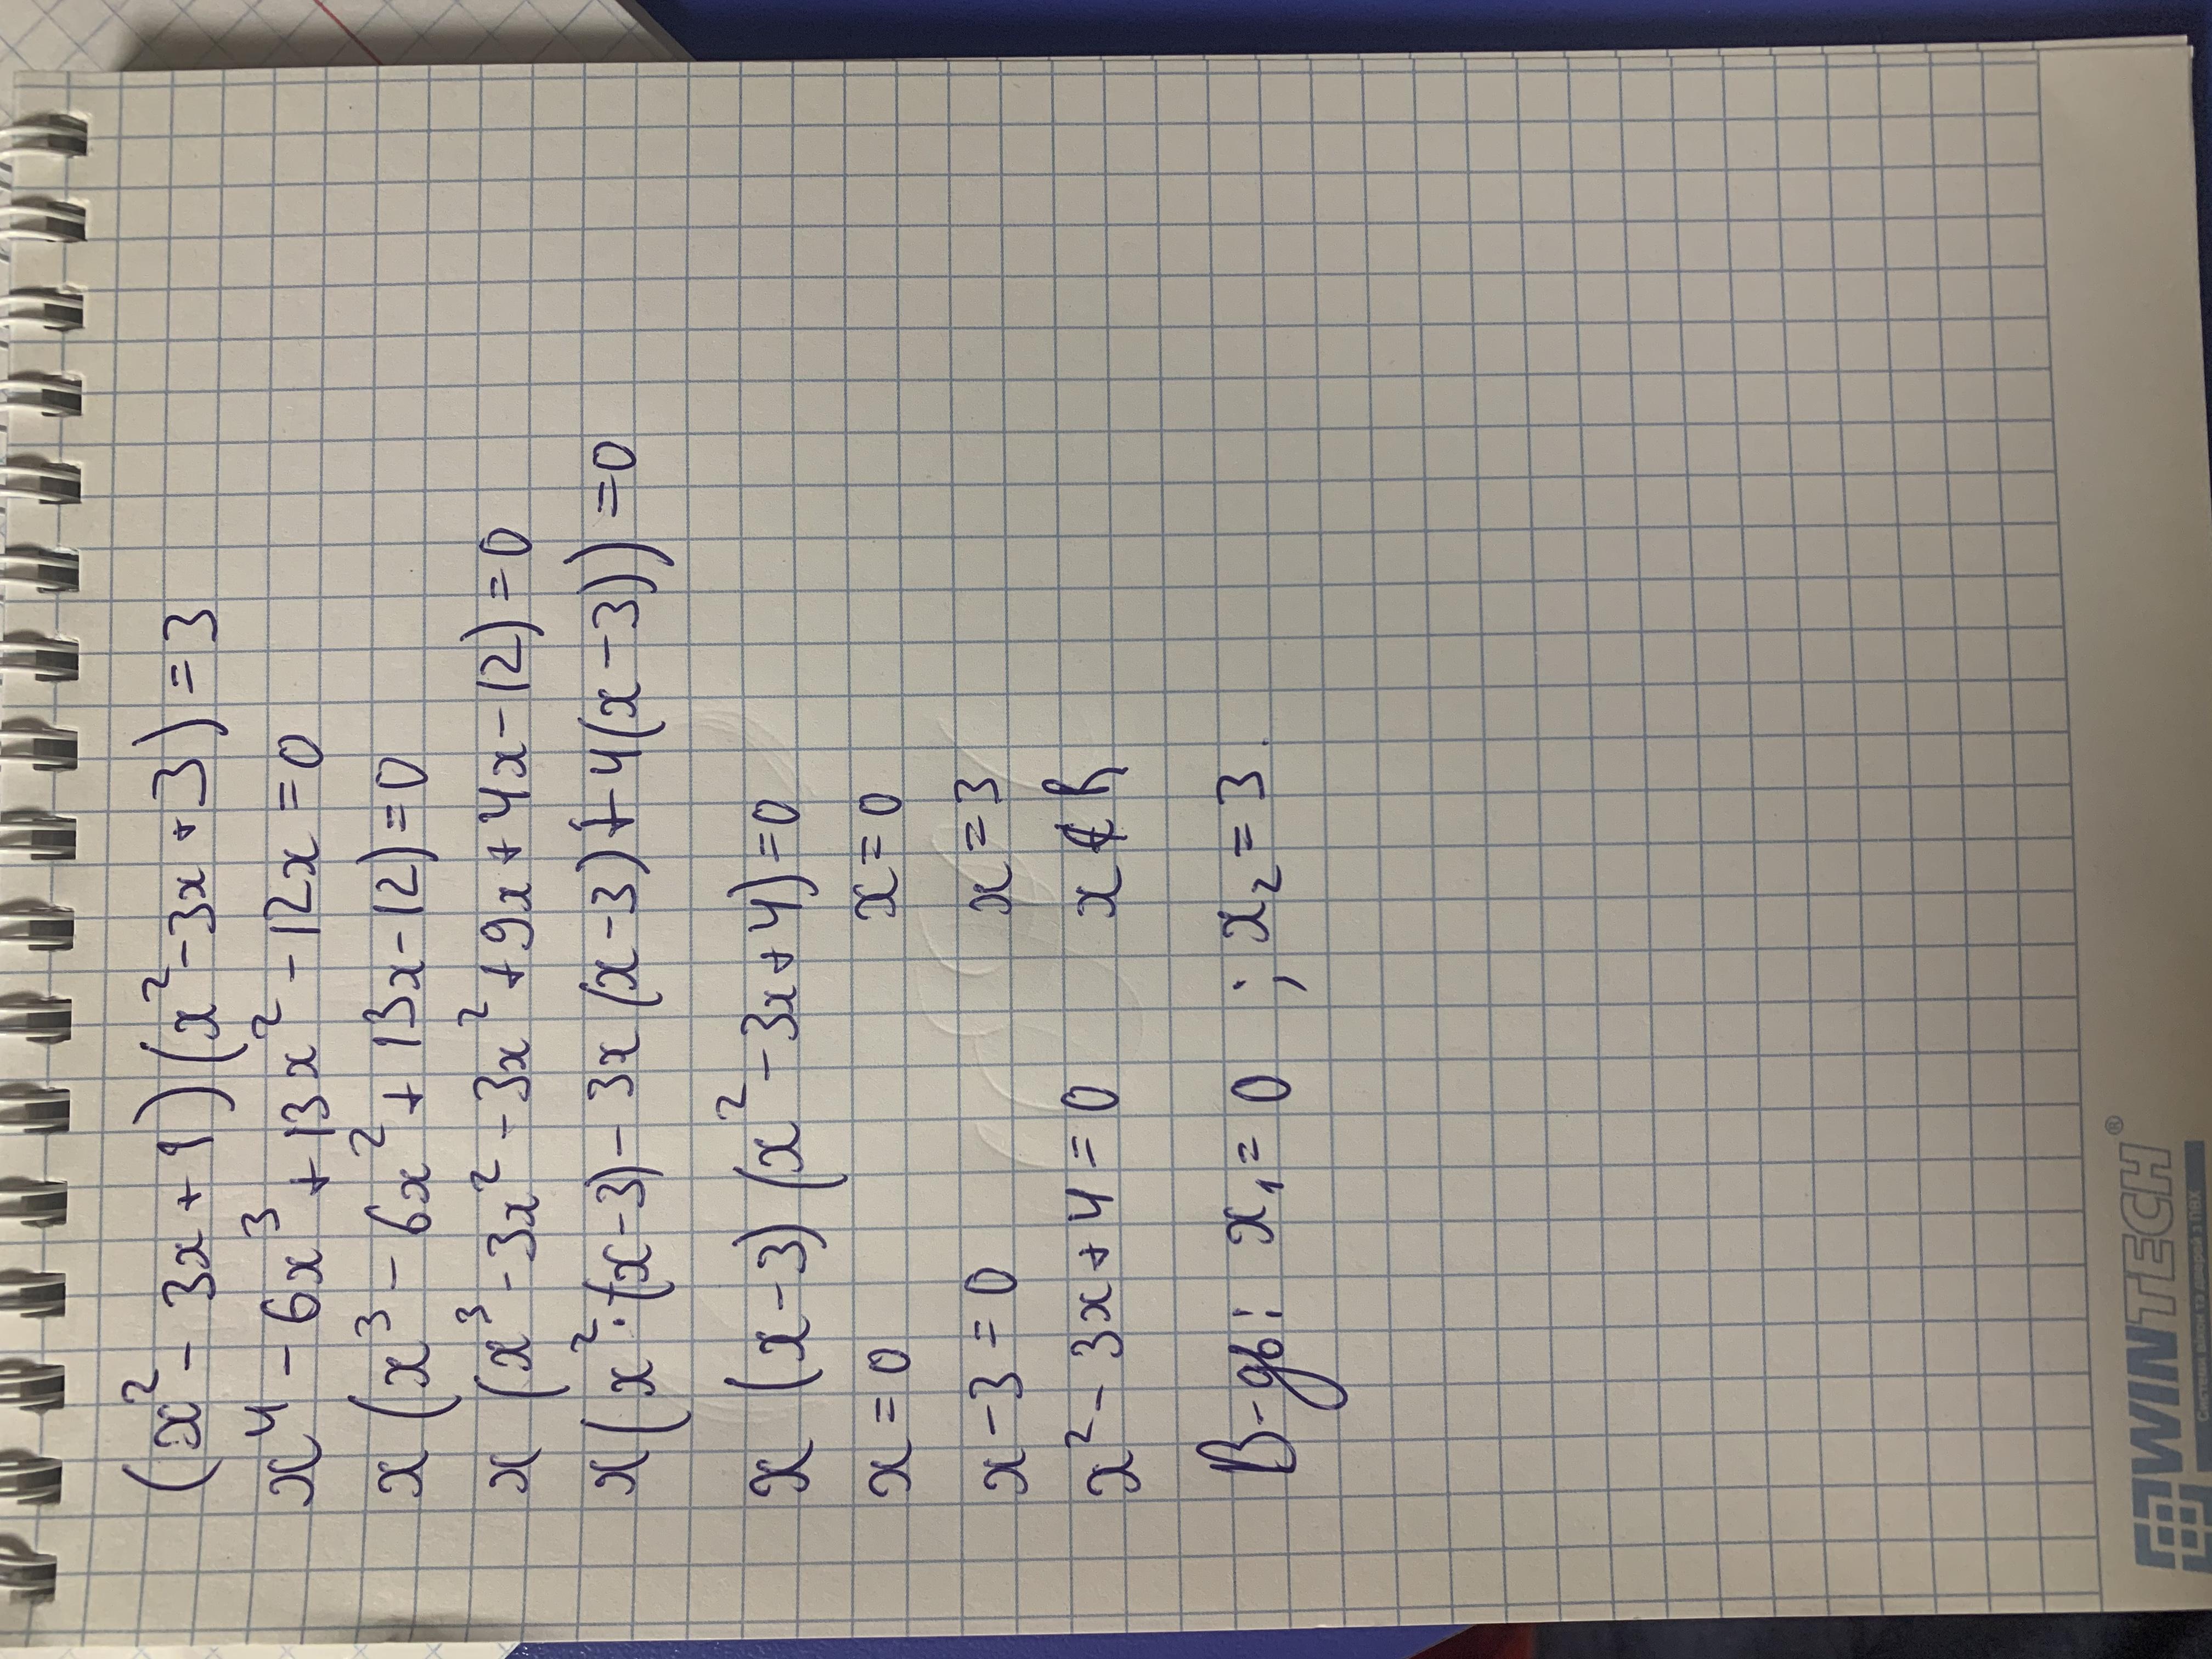 (x² - 3x + 1)(x² - 3x + 3) = 3
x⁴ - 6x³ + 13x² - 12x = 0
x (x³ - 6x² + 13x - 12) = 0
x (x³ - 3x² - 3x² + 9x + 4x - 12) = 0
x (x² · (x - 3) - 3x (x - 3) + 4(x - 3)) = 0
x (x - 3) (x² - 3x + 4) = 0
x = 0 x = 0
x - 3 = 0 x = 3
x² - 3x + 4 = 0 x ∉ R
В-дь: x₁ = 0 ; x₂ = 3.
WINTECH®